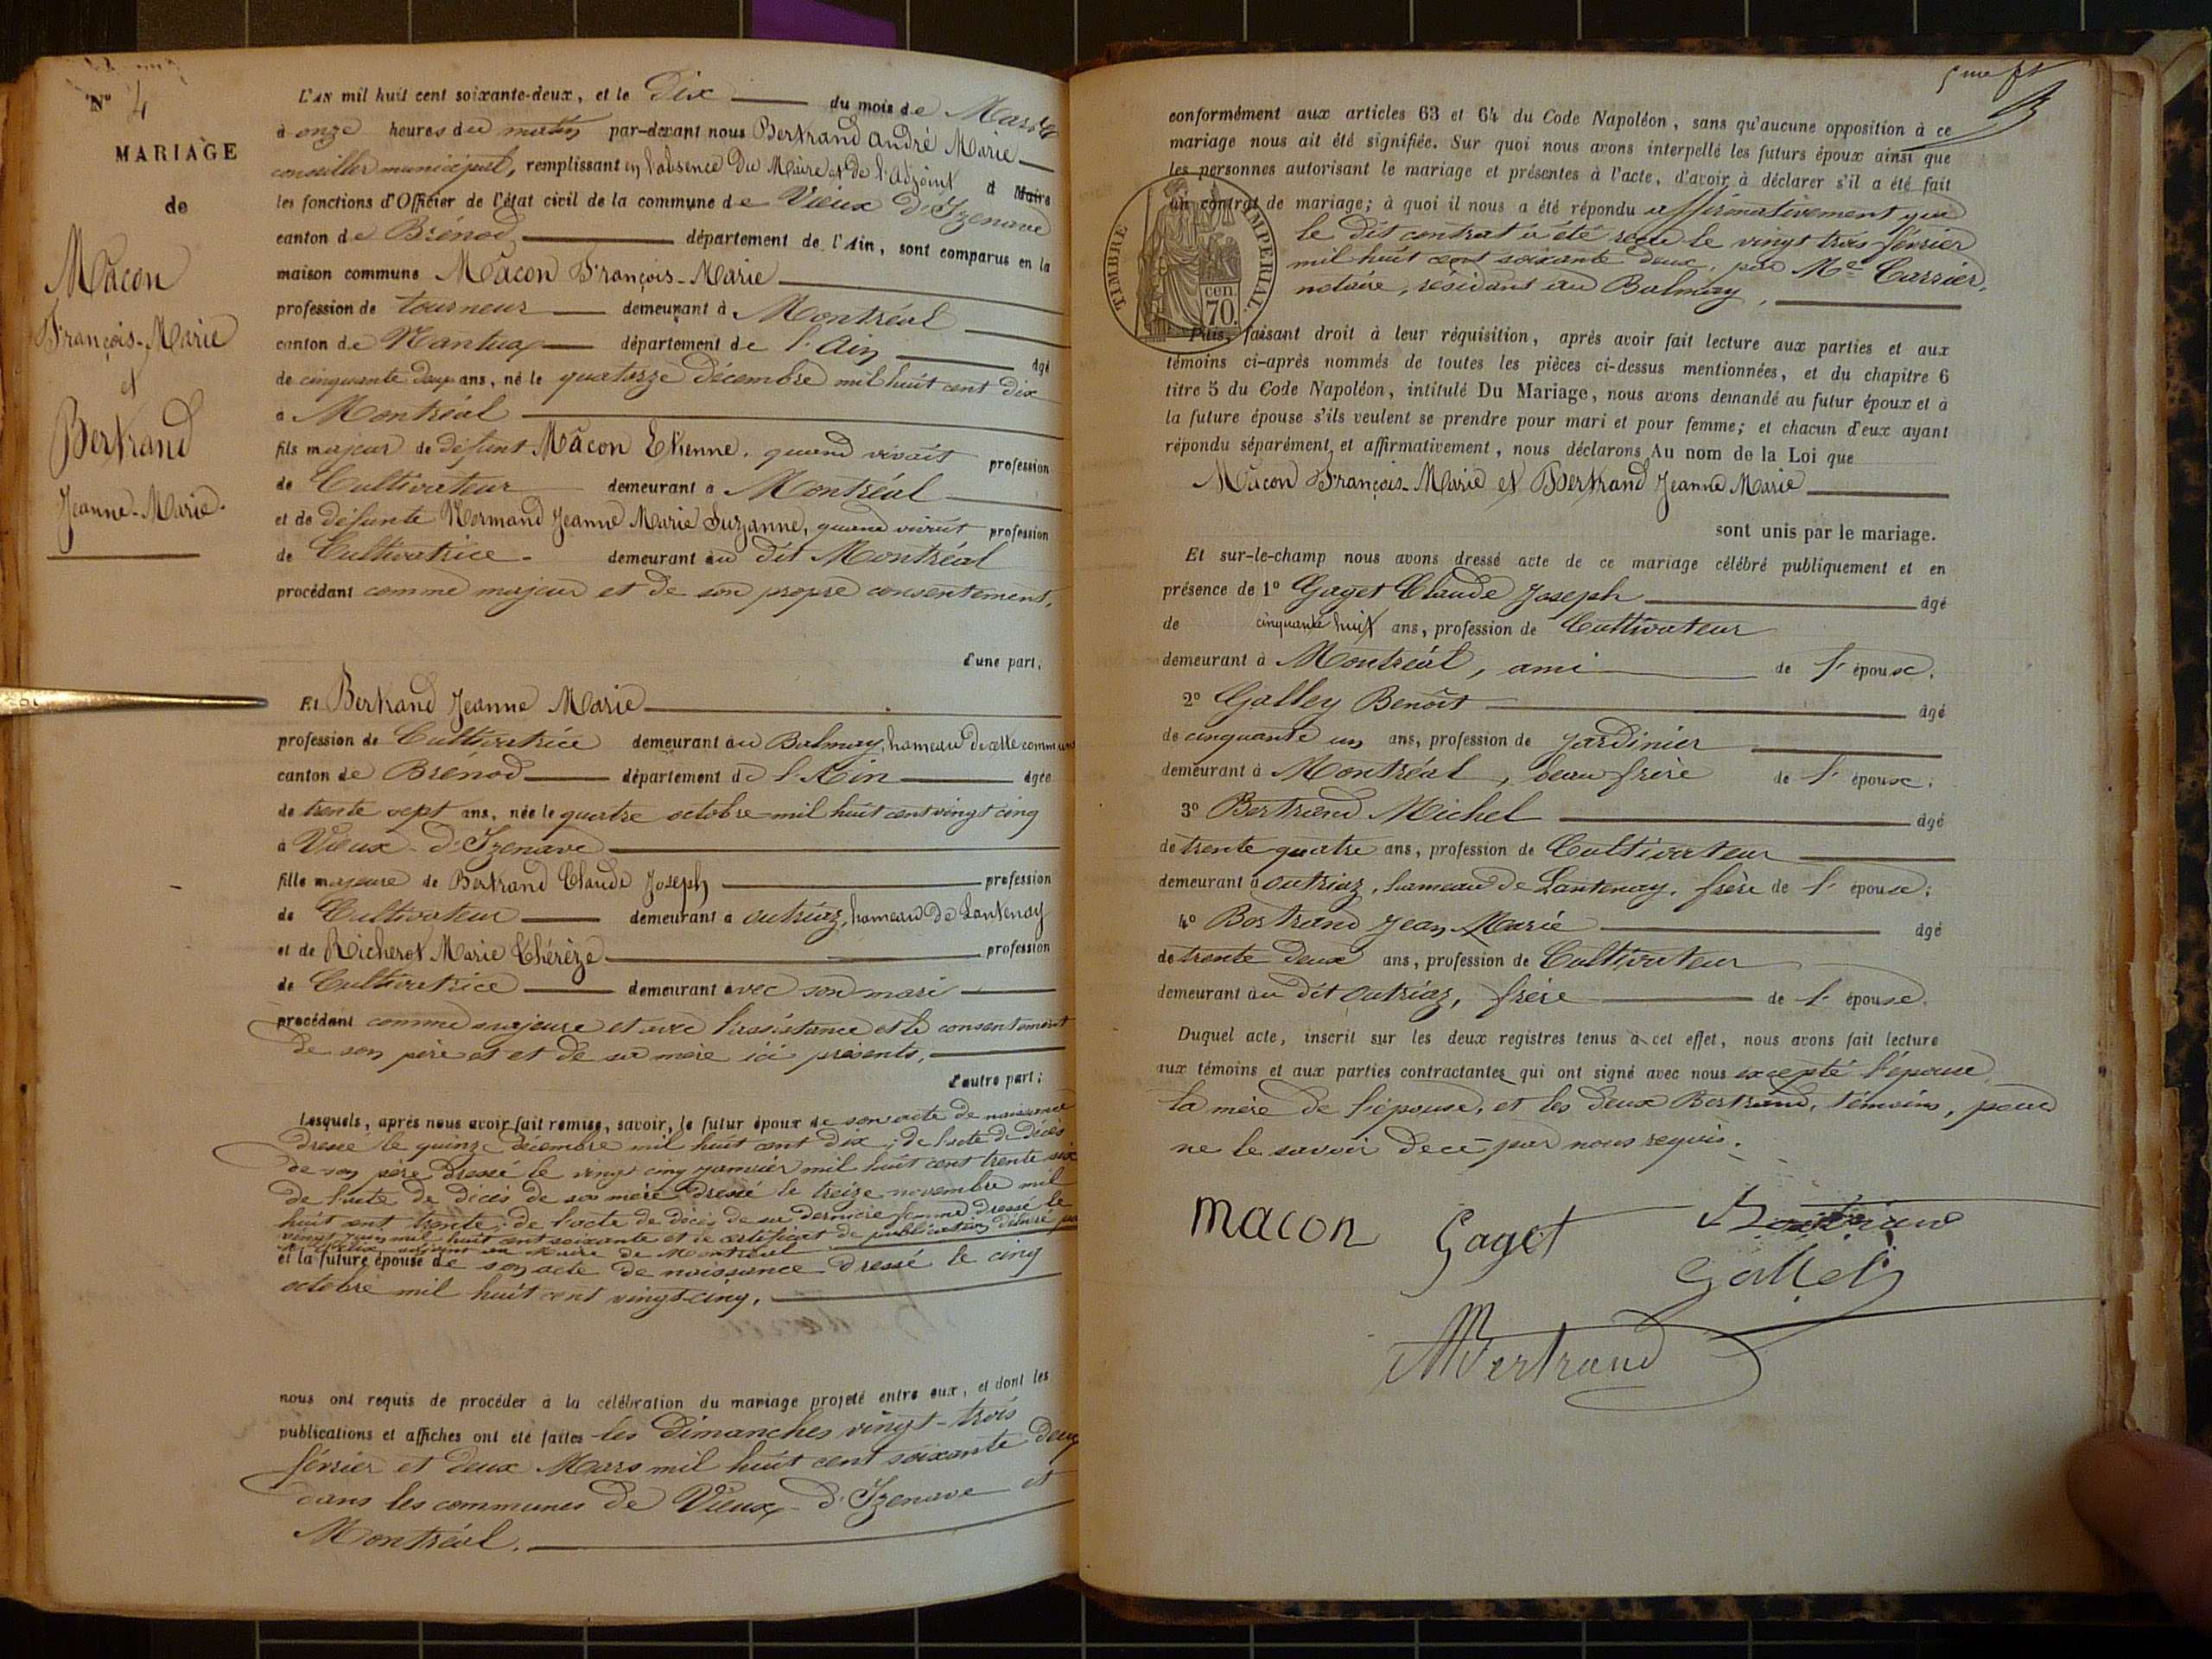 N° 4
MARIAGE
de
Mâcon
François-Marie
et
Bertrand
Jeanne-Marie.
L'AN mil huit cent soixante-deux, et le dix du mois de Mars
à onze heures du matin par-devant nous Bertrand André Marie
conseiller municipal, remplissant en l'absence du Maire et de l'Adjoint et Maire
les fonctions d'Officier de l'état civil de la commune de Vieux d'Izenave
canton de Brénod département de l'Ain, sont comparus en la
maison commune Mâcon François-Marie
profession de tourneur demeurant à Montréal
canton de Nantua département de l'Ain âgé
de cinquante deux ans, né le quatorze décembre mil huit cent dix
à Montréal
fils majeur de défunt Mâcon Etienne, quand vivait profession
de Cultivateur demeurant à Montréal
et de défunte Normand Jeanne Marie Suzanne, quand vivait profession
de Cultivatrice demeurant au dit Montréal
procédant comme majeur et de son propre consentement,
d'une part,
Et Bertrand Jeanne Marie
profession de Cultivatrice demeurant au Balmay, hameau de cette commune
canton de Brénod département de l'Ain âgée
de trente sept ans, née le quatre octobre mil huit cent vingt cinq
à Vieux-d'Izenave
fille majeure de Bertrand Claude Joseph profession
de Cultivateur demeurant à outriaz, hameau de Lantenay
et de Richerot Marie Thérèze profession
de Cultivatrice demeurant avec son mari
procédant comme majeure et avec l'assistance et le consentement
de son père et et de sa mère ici présents,
d'autre part;
Lesquels, après nous avoir fait remise, savoir, le futur époux de son acte de naissance
dressé le quinze décembre mil huit cent dix; de l'acte de décès
de son père dressé le vingt cinq janvier mil huit cent trente six
de l'acte de décès de sa mère dressé le treize novembre mil
huit cent trente; de l'acte de décès de sa dernière femme dressé le
vingt juin mil huit cent soixante et de certificat de publication délivré par
adjoint au Maire de Montréal
et la future épouse de son acte de naissance dressé le cinq
octobre mil huit cent vingt-cinq,
nous ont requis de procéder à la célébration du mariage projeté entre eux, et dont les
publications et affiches ont été faites les dimanches vingt-trois
février et deux Mars mil huit cent soixante deux
dans les communes de Vieux-d'Izenave et
Montréal.
conformément aux articles 63 et 64 du Code Napoléon, sans qu'aucune opposition à ce
mariage nous ait été signifiée. Sur quoi nous avons interpellé les futurs époux ainsi que
les personnes autorisant le mariage et présentes à l'acte, d'avoir à déclarer s'il a été fait
un contrat de mariage; à quoi il nous a été répondu affirmativement que
le dit contrat a été reçu le vingt trois février
mil huit cent soixante deux, par Me Carrier,
notaire, résidant au Balmay,
TIMBRE IMPÉRIAL
cen.
70.
Puis, faisant droit à leur réquisition, après avoir fait lecture aux parties et aux
témoins ci-après nommés de toutes les pièces ci-dessus mentionnées, et du chapitre 6
titre 5 du Code Napoléon, intitulé Du Mariage, nous avons demandé au futur époux et à
la future épouse s'ils veulent se prendre pour mari et pour femme; et chacun d'eux ayant
répondu séparément et affirmativement, nous déclarons Au nom de la Loi que
Mâcon François-Marie et Bertrand Jeanne Marie
sont unis par le mariage.
Et sur-le-champ nous avons dressé acte de ce mariage célébré publiquement et en
présence de 1° Gaget Claude Joseph âgé
de cinquante huit ans, profession de Cultivateur
demeurant à Montréal, ami de l' épouse,
2° Galley Benoît âgé
de cinquante un ans, profession de jardinier
demeurant à Montréal, beau frère de l' épouse;
3° Bertrand Michel âgé
de trente quatre ans, profession de Cultivateur
demeurant à outriaz, hameau de Lantenay, frère de l' épouse;
4° Bertrand Jean Marie âgé
de trente deux ans, profession de Cultivateur
demeurant au dit outriaz, frère de l' épouse.
Duquel acte, inscrit sur les deux registres tenus à cet effet, nous avons fait lecture
aux témoins et aux parties contractantes qui ont signé avec nous excepté l'épouse
la mère de l'épouse, et les deux Bertrand, témoins, pour
ne le savoir de ce par nous requis.
macon Gaget Bertrand
Galley
AMBertrand